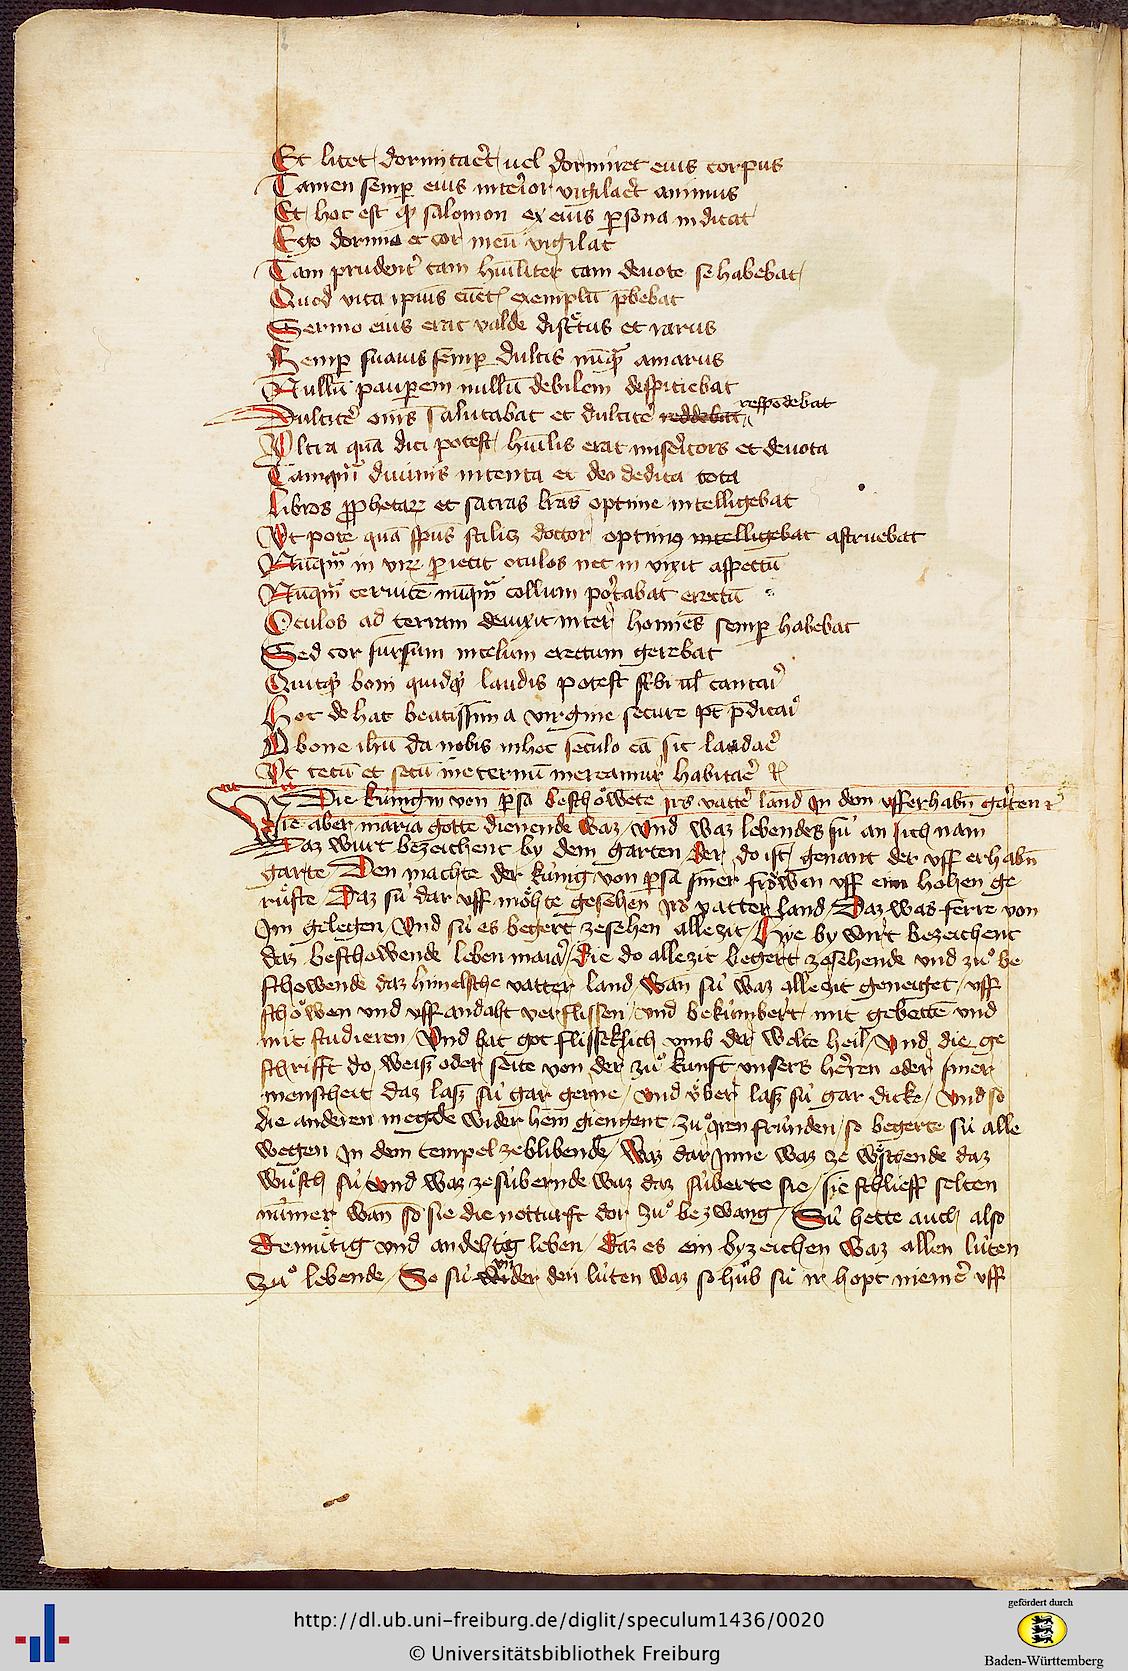 Et licet dormitaret uel dormiret eius corpus
Tamen semper eius interior vigilaret animus
Et hoc est quod salomon ex eius persona indicat
Ego dormio et cor meū vigilat
Tam prudenter tam hūiliter tam deuote se habebat
Quod vita ipius cūctis exemplū prebebat
Sermo eius erat valde discretus et rarus
Semper suauis semper dulcis nūquam amarus
Nullū pauperem nullū debilem despiciebat
Dulciter omīs salutabat et dulciter reddebat respōdebat
Ultra quā dici potest hūilis erat misericors et deuota
Tamquam diuinis intenta et deo dedita tota
Libros prophetarum et sacras lrās optime intelligebat
Vt pote quā spūs scilicet doctor optimus intelligebat astruebat
Nūquam in virum proiecit oculos nec in vixit aspectū
Nūquam ceruicē nūquam collum portabat erectū
Oculos ad terram deuixit inter homīes semper habebat
Sed cor sursum in celum erectum gerebat
Quitquid boni quidquid laudis potest scribi uel cantari
Hoc de hac beatissima virgine secure potest predicari
O bone ihū da nobis in hoc seculo eā sic laudare
Vt tecū et secū in eternū mereamur habitare
Die kúnigin von persa beschôwete irs vatter land in dem vfferhabn garten
Wie aber maria gotte dienende waz / Vnd waz lebendes sú an sich nam
Daz wurt bezeichent by dem garten / Der do ist genant der vff erhabn
garte / Den machte der kúnig von persa siner frôwen vff eim hohen ge
rúste / Daz sú dar vff môhte gesehen irs vatter land / Daz was ferre von
Im gelegen / Vnd sú es begert zesehen allezit / Hye by wirt bezeichent
daz beschowende leben marie / die do allezit begert zesehende vnd zů be
schowende daz himelsche vatter land / wan sú waz allezit geneiget / vff
schôwen vnd vff andaht verflissen / vnd bekúmbert mit gebette vnd
mit studieren / Vnd bat got flisseklich vmb der welte heil / Vnd die ge
schrifft do weisz oder seite von der zů kunft vnsers herren oder siner
menscheit daz lasz sú gar gerne / vnd vber lasz sú gar dicke / Vnd so
die anderen megde wider hein giengent zů iren frúnden / so begerte sú alle
wegen in dem tempel zeblibende / Waz dar Inne waz ze wschende daz
wůsch sú vnd waz zesúbernde waz daz súberte sie / sie schlieff selten
nůmer wan so sie die notturft dor zů bezwang / Sú hette auch also
demůtig vnd andehtig leben / daz es ein byzeichen waz allen lúten
Zů lebende / So sú vnder den lúten waz so hůb sú ir hopt niemer vff
http://dl.ub.uni-freiburg.de/diglit/speculum1436/0020
© Universitätsbibliothek Freiburg
gefördert durch
Baden-Württemberg